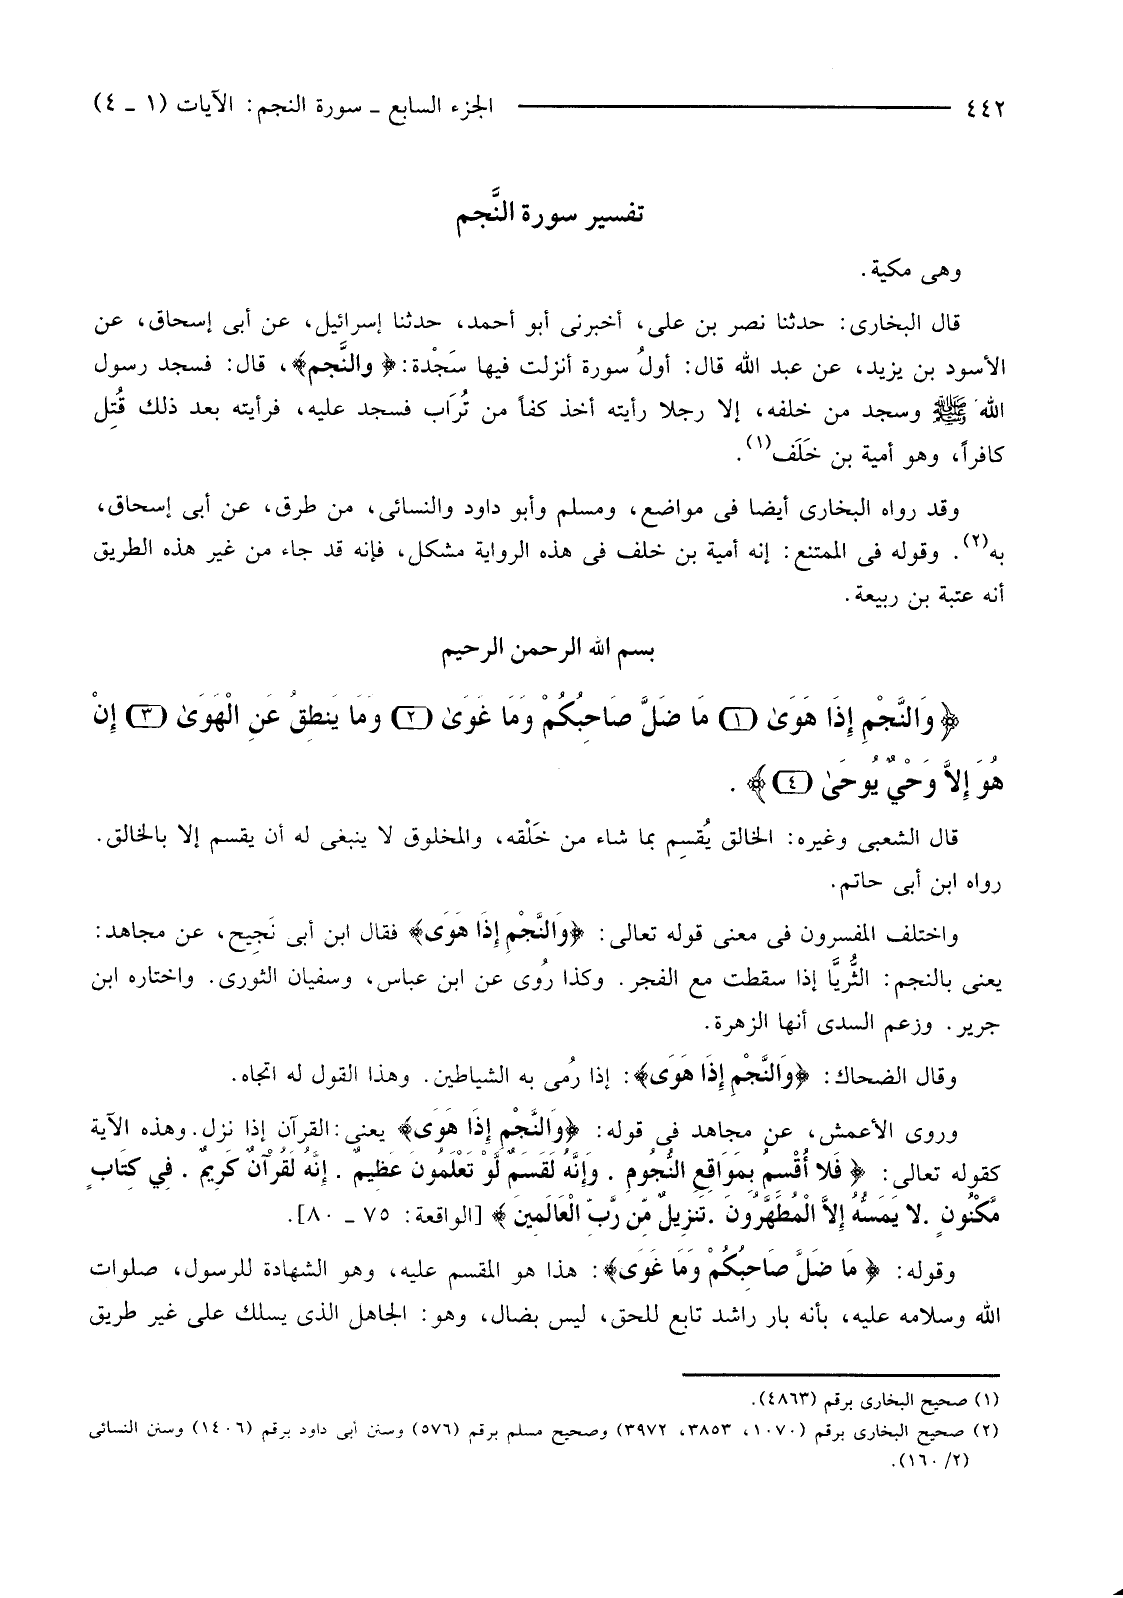 ٤٤٢ الجزء السابع ـ سورة النجم: الآيات (١ ـ ٤)
تفسير سورة النَّجم
وهى مكية.
قال البخارى: حدثنا نصر بن على، أخبرنى أبو أحمد، حدثنا إسرائيل، عن أبى إسحاق، عن
الأسود بن يزيد، عن عبد الله قال: أولُ سورة أنزلت فيها سَجْدة: ﴿ والنَّجم﴾، قال: فسجد رسول
الله ﷺ وسجد من خلفه، إلا رجلا رأيته أخذ كفاً من تُرَاب فسجد عليه، فرأيته بعد ذلك قُتِل
كافراً، وهو أمية بن خَلَف(١).
وقد رواه البخارى أيضا فى مواضع، ومسلم وأبو داود والنسائى، من طرق، عن أبى إسحاق،
به(٢). وقوله فى الممتنع: إنه أمية بن خلف فى هذه الرواية مشكل، فإنه قد جاء من غير هذه الطريق
أنه عتبة بن ربيعة.
بسم الله الرحمن الرحيم
﴿ وَالنَّجْمِ إِذَا هَوَىٰ (١) مَا ضَلَّ صَاحِبُكُمْ وَمَا غَوَىٰ (٢) وَمَا يَنطِقُ عَنِ الْهَوَىٰ (٣) إِنْ
هُوَ إِلاَّ وَحْيٌ يُوحَىٰ (٤) ﴾ .
قال الشعبى وغيره: الخالق يُقسِم بما شاء من خَلْقه، والمخلوق لا ينبغى له أن يقسم إلا بالخالق.
رواه ابن أبى حاتم.
واختلف المفسرون فى معنى قوله تعالى: ﴿وَالنَّجْمِ إِذَا هَوَى﴾ فقال ابن أبى نَجِيح، عن مجاهد:
يعنى بالنجم: الثُّريَّا إذا سقطت مع الفجر. وكذا رُوى عن ابن عباس، وسفيان الثورى. واختاره ابن
جرير. وزعم السدى أنها الزهرة.
وقال الضحاك: ﴿وَالنَّجْمِ إِذَا هَوَى﴾: إذا رُمى به الشياطين. وهذا القول له اتجاه.
وروى الأعمش، عن مجاهد فى قوله: ﴿وَالنَّجْمِ إِذَا هَوَى﴾ يعنى: القرآن إذا نزل. وهذه الآية
كقوله تعالى: ﴿ فَلا أُقْسِمُ بِمَوَاقِعِ النُّجُومِ . وَإِنَّهُ لَقَسَمٌ لَّوْ تَعْلَمُونَ عَظِيمٌ . إِنَّهُ لَقُرْآنٌ كَرِيمٌ . فِي كِتَابٍ
مَّكْنُونٍ . لا يَمَسُّهُ إِلاَّ الْمُطَهَّرُونَ . تَنزِيلٌ مِّن رَّبِّ الْعَالَمِينَ ﴾ [الواقعة: ٧٥ ـ ٨٠].
وقوله: ﴿ مَا ضَلَّ صَاحِبُكُمْ وَمَا غَوَى﴾: هذا هو المقسم عليه، وهو الشهادة للرسول، صلوات
الله وسلامه عليه، بأنه بار راشد تابع للحق، ليس بضال، وهو: الجاهل الذى يسلك على غير طريق
(١) صحيح البخارى برقم (٤٨٦٣).
(٢) صحيح البخارى برقم (١٠٧٠، ٣٨٥٣، ٣٩٧٢) وصحيح مسلم برقم (٥٧٦) وسنن أبى داود برقم (١٤٠٦) وسنن النسائى
(٢/ ١٦٠).